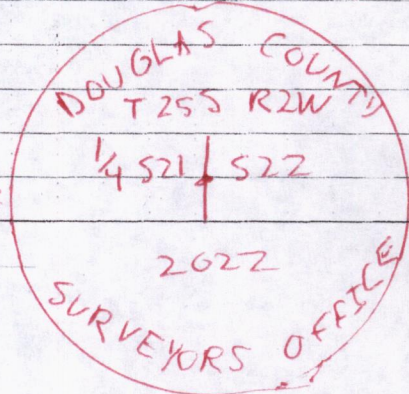 DOUGLAS COUNTY
T25S R2W
1/4 S21 S22
2022
SURVEYORS OFFICE